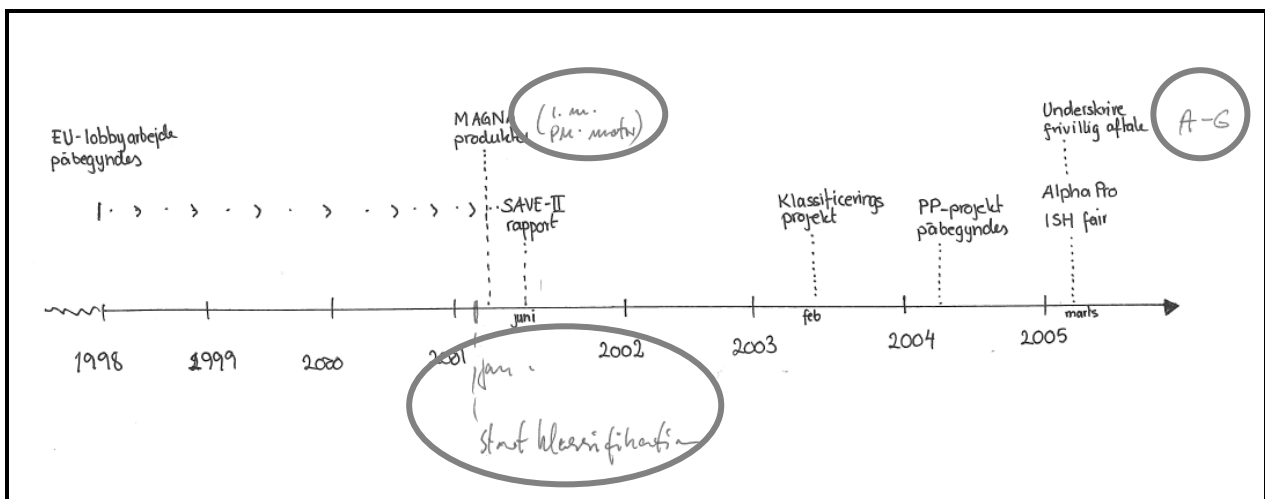 EU-lobbyarbejde
påbegyndes
MAGNA
produkter
(I.m.
PM-motor)
SAVE-II
rapport
Klassificerings
projekt
PP-projekt
påbegyndes
Underskrive
frivillig aftale
A-G
Alpha Pro
ISH fair
juni
feb
marts
1998
1999
2000
2001
2002
2003
2004
2005
jan.
start klassifikation